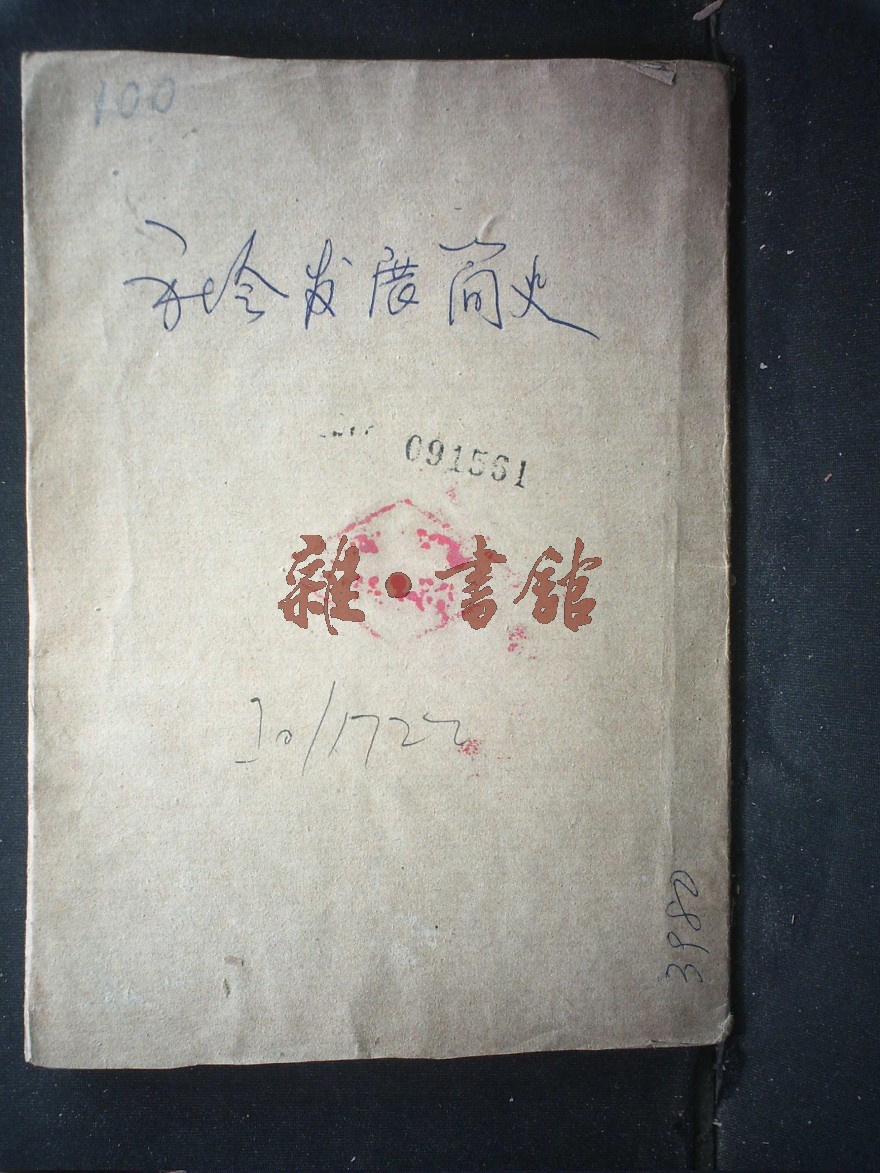 100
社会发展简史
091561
雜•書館
30/1722
3980